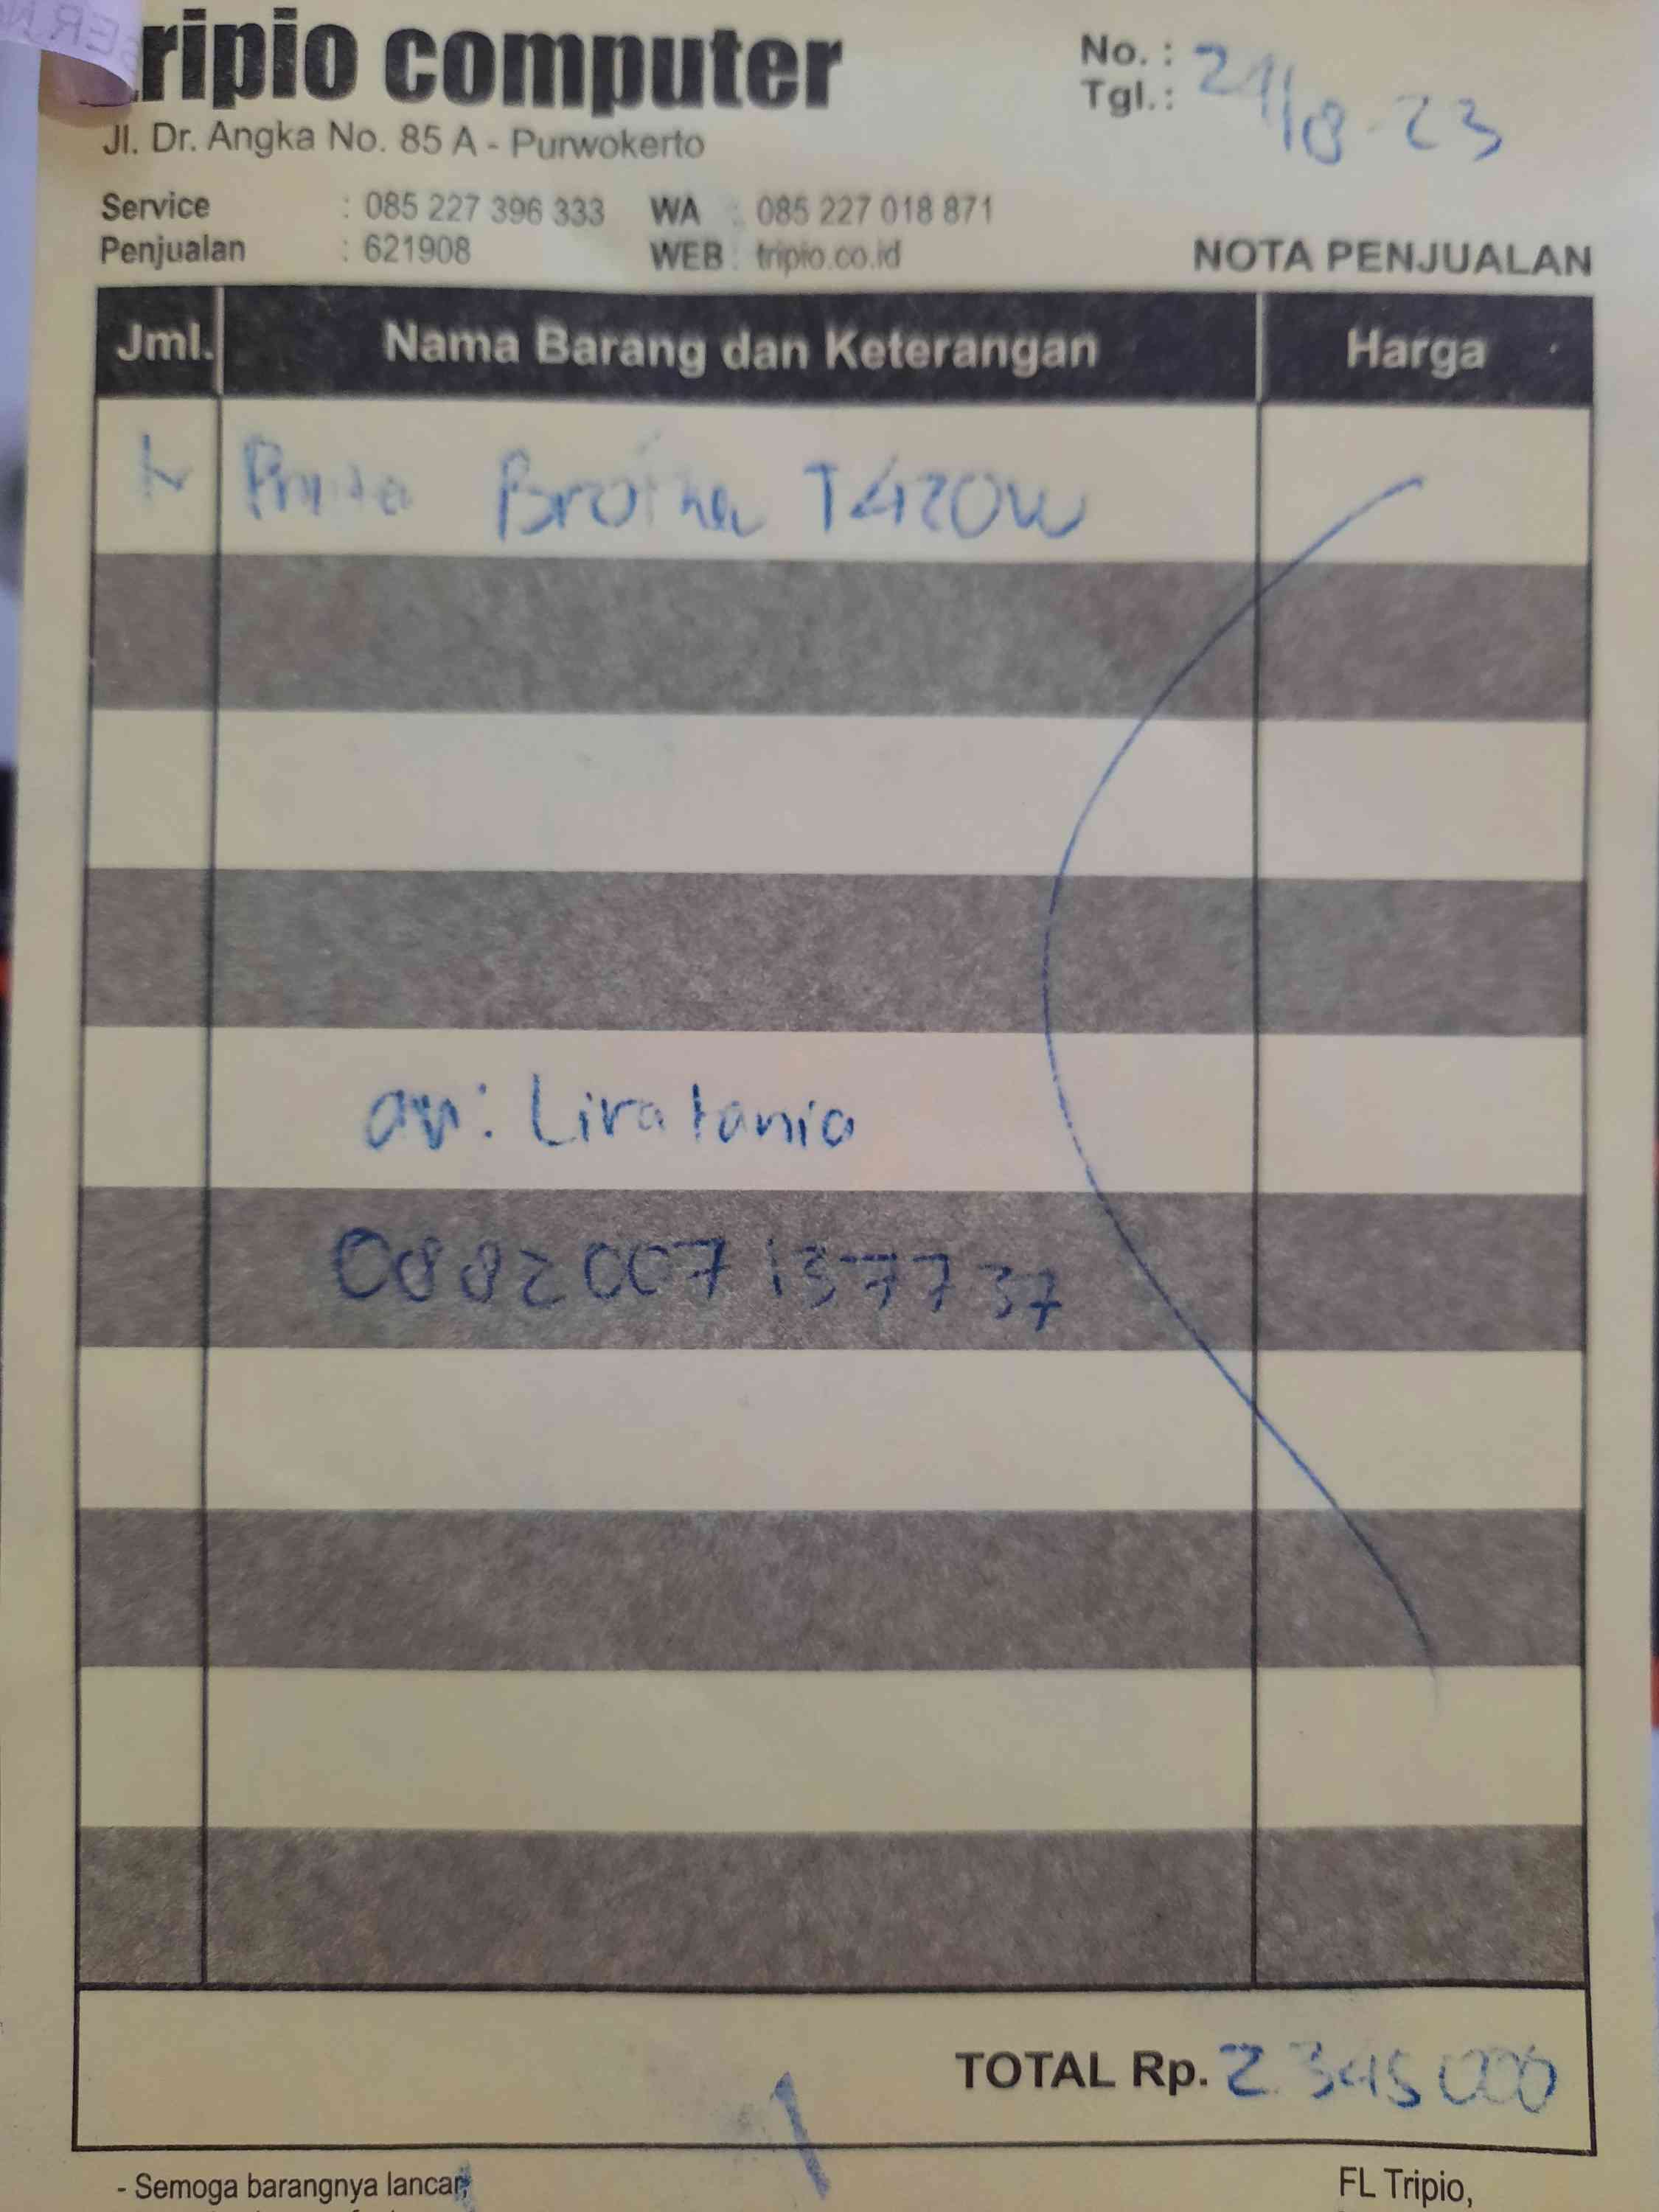 tripio computer
Jl. Dr. Angka No. 85 A - Purwokerto
No. :
Tgl.: 21/8-23
Service : 085 227 396 333 WA : 085 227 018 871
Penjualan : 621908 WEB : tripio.co.id
NOTA PENJUALAN
Jml. Nama Barang dan Keterangan Harga
Printer Brother T420W
an: Liratania
0882007137737
TOTAL Rp. 2.345.000
- Semoga barangnya lancar,
FL Tripio,